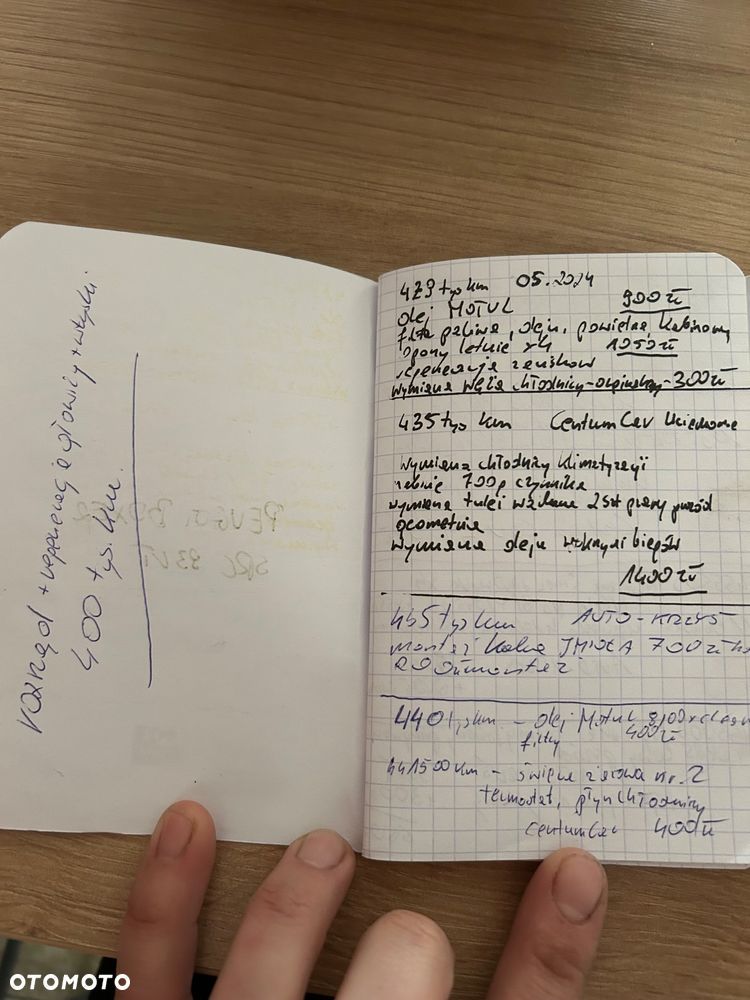 rozrząd + regeneracja głowicy + wtryski
400 tys. km.
PEUGEOT BOXER
429 tys km 05.2024
olej MOTUL 900 zł
filtr paliwa, oleju, powietrza, kabinowy
opony letnie x4 1050 zł
regeneracja zacisków
wymiana węża chłodnicy - oryginalny - 300 zł
435 tys km CentumCar
wymiana chłodnicy klimatyzacji
nabicie 700g czynnika
wymiana tulei wahacza 2szt prawy przód
geometria
wymiana oleju skrzyni biegów
1400 zł
445 tys km AUTO-KRZYŚ
montaż haka IMIOŁA 700 zł
200zł montaż
440 tys km - olej Motul 8100 xclean
filtry 400 zł
441500 km - świeca żarowa nr. 2
termostat, płyn chłodniczy
CentumCar 400 zł
OTOMOTO